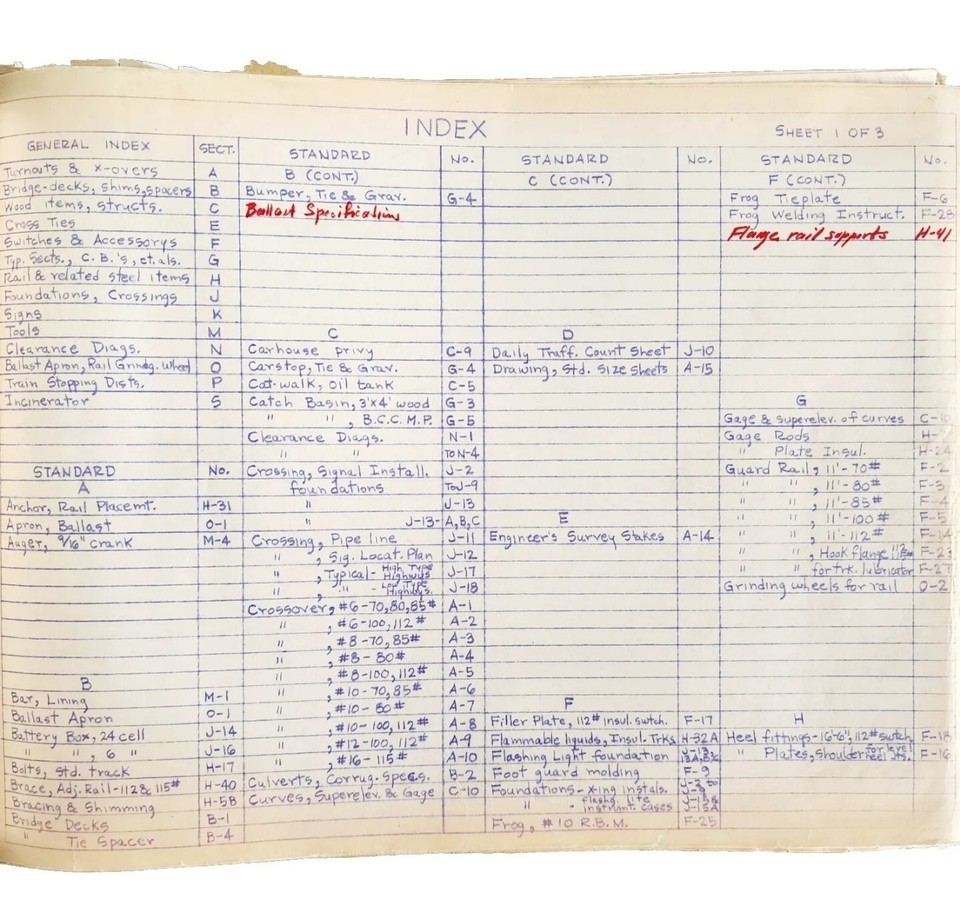 INDEX
SHEET 1 OF 3
GENERAL INDEX SECT.
Turnouts & x-overs A
Bridge-decks, shims, spacers B
Wood items, structs. C
Cross Ties E
Switches & Accessorys F
Typ. Sects., C.B.'s, et.als. G
Rail & related steel items H
Foundations, Crossings J
Signs K
Tools M
Clearance Diags. N
Ballast Apron, Rail Grindg. Wheel O
Train Stopping Dists. P
Incinerator S
STANDARD No.
A
Anchor, Rail Placemt. H-31
Apron, Ballast O-1
Auger, 9/16" crank M-4
B
Bar, Lining M-1
Ballast Apron O-1
Battery Box, 24 cell J-14
" " , 6 " J-16
Bolts, Std. track H-17
Brace, Adj. Rail-112& 115# H-40
Bracing & Shimming H-5B
Bridge Decks B-1
" Tie Spacer B-4
STANDARD No.
B (CONT.)
Bumper, Tie & Grav. G-4
Ballast Specifications
C
Carhouse privy C-9
Carstop, Tie & Grav. G-4
Cat-walk, oil tank C-5
Catch Basin, 3'x4' wood G-3
" " , B.C.C.M.P. G-5
Clearance Diags. N-1
" " To N-4
Crossing, Signal Install. J-2
foundations To J-9
" J-13
J-13-A,B,C
Crossing, Pipe line J-11
" , Sig. Locat. Plan J-12
" , Typical - High Type Highways J-17
" , " - Low Type Highwys. J-18
Crossover, #6-70,80,85# A-1
" , #6-100,112# A-2
" , #8-70,85# A-3
" , #8-80# A-4
" , #8-100,112# A-5
" , #10-70,85# A-6
" , #10-80# A-7
" , #10-100,112# A-8
" , #12-100,112# A-9
" , #16-115# A-10
Culverts, Corrug. Specs. B-2
Curves, Superelev. & Gage C-10
STANDARD No.
C (CONT.)
D
Daily Traff. Count Sheet J-10
Drawing, Std. Size Sheets A-15
E
Engineer's Survey Stakes A-14
F
Filler Plate, 112# insul. swtch. F-17
Flammable liquids, Insul. Trks H-32A
Flashing Light foundation J-13, 13A,B,C
Foot guard molding F-9
Foundations - x-ing instals.
" - flashg. lite
instrmt. cases J-15A
Frog, #10 R.B.M. F-25
STANDARD No.
F (CONT.)
Frog Tieplate F-6
Frog Welding Instruct. F-28
Flange rail supports H-41
G
Gage & superelev. of curves C-10
Gage Rods
" Plate Insul. H-24
Guard Rail, 11'-70# F-2
" " , 11'-80# F-3
" " , 11'-85# F-4
" " , 11'-100# F-5
" " , 11'-112# F-14
" " , Hook flange 112#
" " for trk. lubricator F-27
Grinding wheels for rail O-2
H
Heel fittings-16'-6", 112# switch F-18
" Plates, shoulder for level heel jts. F-16